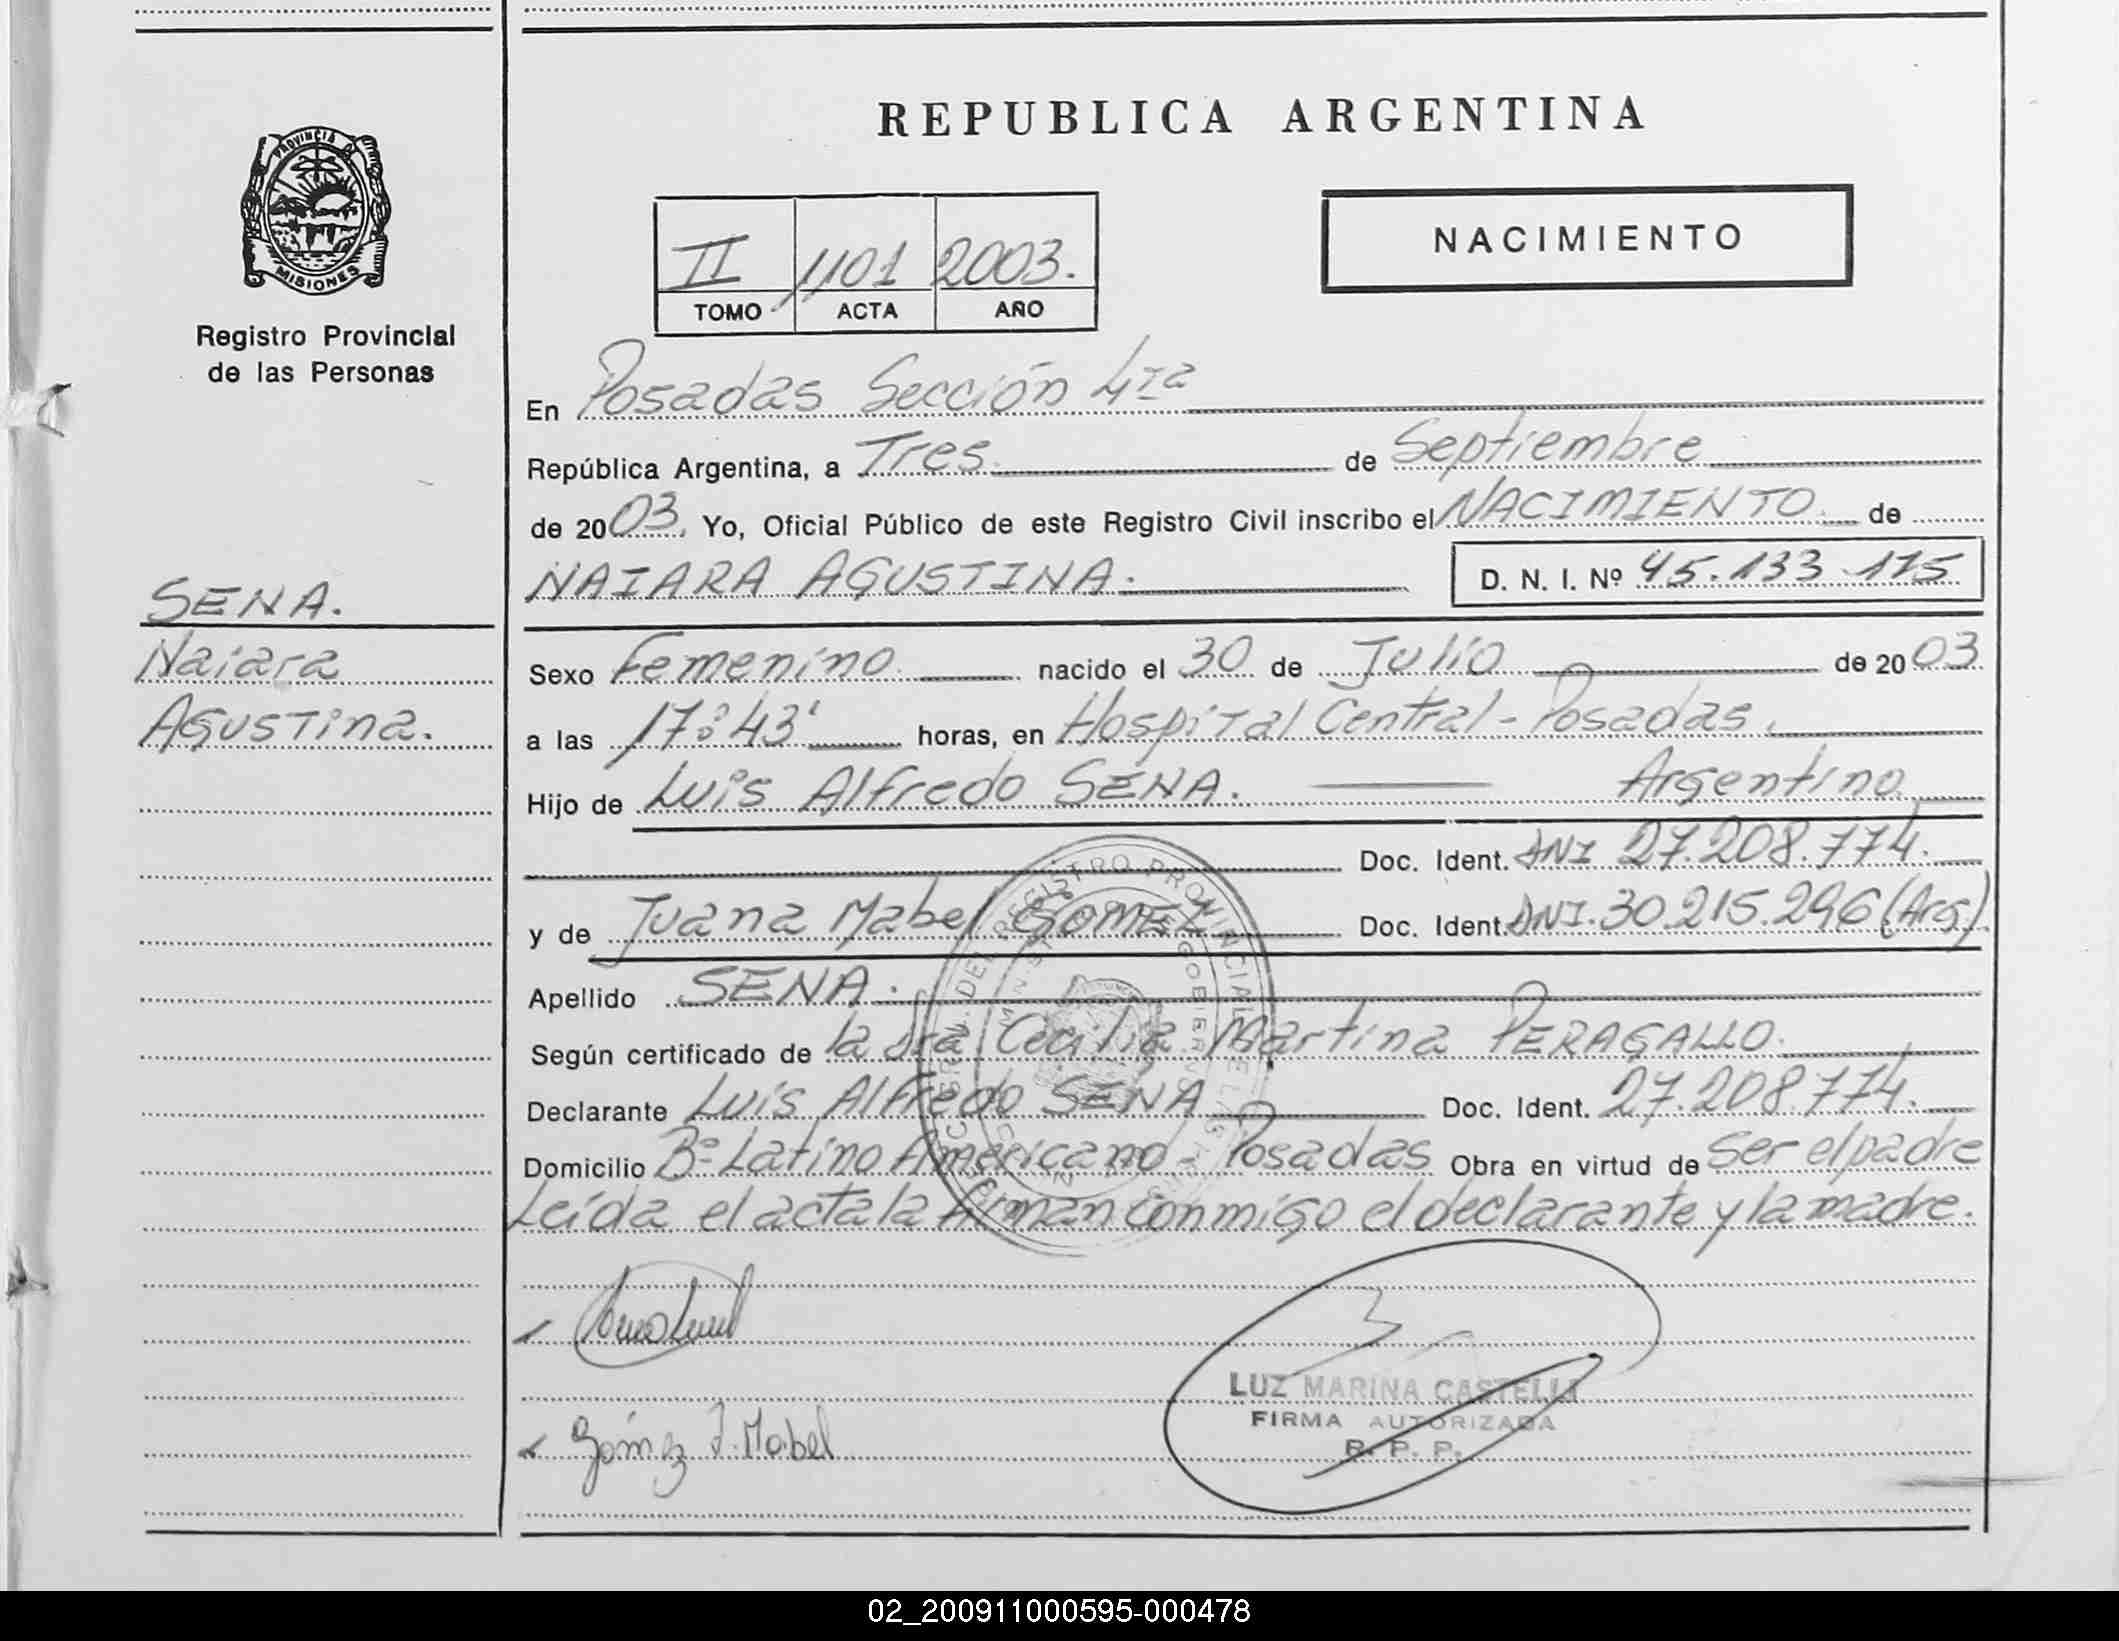 REPUBLICA ARGENTINA
PROVINCIA DE
MISIONES
Registro Provincial
de las Personas
II 1101 2003.
TOMO ACTA AÑO
NACIMIENTO
En Posadas Sección 4ta
República Argentina, a Tres de Septiembre
de 2003. Yo, Oficial Público de este Registro Civil inscribo el NACIMIENTO de
NAIARA AGUSTINA.
D. N. I. Nº 45.133.175
SENA.
Naiara
Agustina.
Sexo Femenino nacido el 30 de Julio de 2003
a las 17:43' horas, en Hospital Central - Posadas.
Hijo de Luis Alfredo SENA. Argentino
Doc. Ident. DNI 27.208.774.
y de Juana Mabel GOMEZ Doc. Ident. DNI. 30.215.296 (Arg).
Apellido SENA.
Según certificado de la dra Cecilia Martina PERAGALLO.
Declarante Luis Alfredo SENA Doc. Ident. 27.208.774.
Domicilio Bº Latino Americano - Posadas Obra en virtud de Ser el padre
Leída el acta la firman conmigo el declarante y la madre.
DEL REGISTRO PROVINCIAL DE LAS
Gómez J. Mabel
LUZ MARINA CASTELLI
FIRMA AUTORIZADA
R. P. P.
02_200911000595-000478